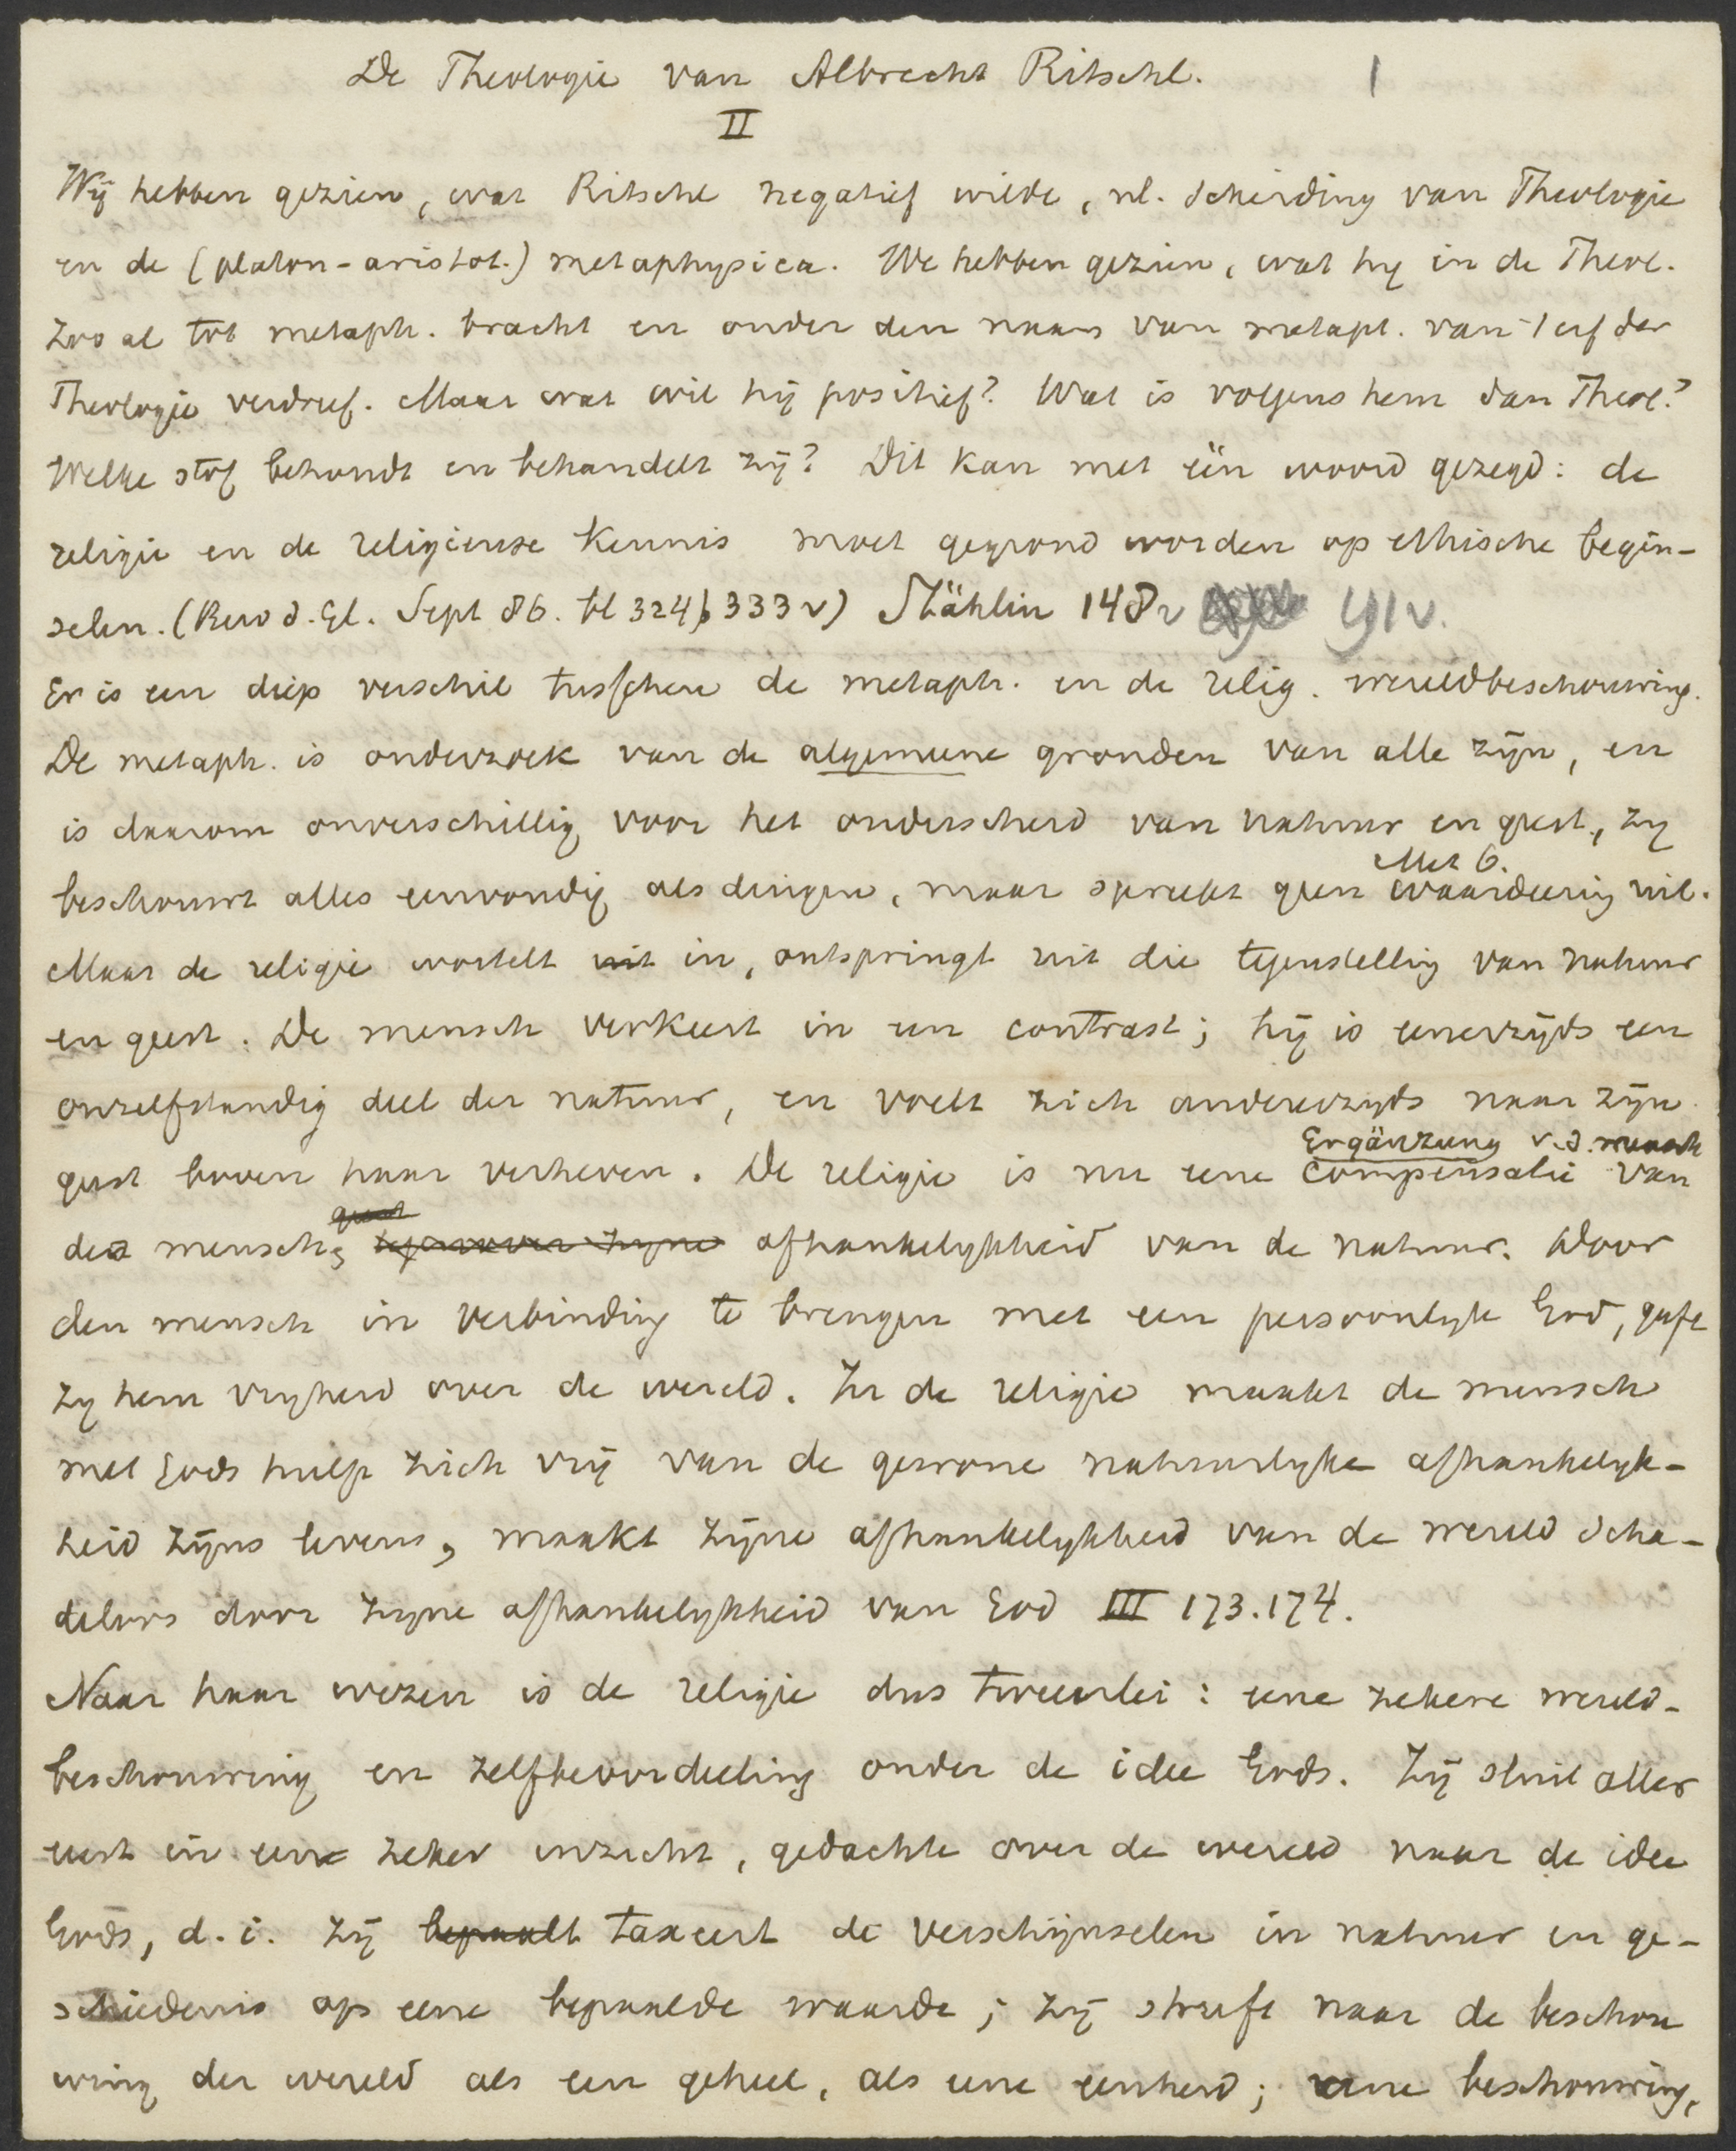 De Theologie van Albrecht Ritschl. 1
II
Wij hebben gezien, wat Ritschl negatief wilde, nl. scheiding van Theologie
en de (platon-aristot.) metaphysica. We hebben gezien, wat hij in de Theol.
zoo al tot metaph. bracht en onder den naam van metaph. van 't erf der
Theologie verdreef. Maar wat wil hij positief? Wat is volgens hem dan Theol.?
Welke stof behoudt en behandelt zij? Dit kan met één woord gezegd: de
religie en de religieuse kennis moet gegrond worden op ethische begin-
selen. (Bew d. Gl. Sept 86. bl 324, 333 v) Stählin 148v 91v.
Er is een diep verschil tusschen de metaph. en de relig. wereldbeschouwing.
De metaph. is onderzoek van de algemeene gronden van alle zijn, en
is daarom onverschillig voor het onderscheid van natuur en geest, zij
Met 6.
beschouwt alles eenvoudig als dingen, maar spreekt geen waardeering uit.
Maar de religie wortelt uit in, ontspringt uit die tegenstelling van natuur
en geest. De mensch verkeert in een contrast; hij is eenerzijds een
onzelfstandig deel der natuur, en voelt zich andererzijds naar zijn
Ergänzung v.d. mensch
geest boven haar verheven. De religie is nu eene compensatie van
geest
des menschs tegenover zijne afhankelijkheid van de natuur. Door
den mensch in verbinding te brengen met een persoonlijk God, geeft
zij hem vrijheid over de wereld. In de religie maakt de mensch
met Gods hulp zich vrij van de gewone natuurlijke afhankelijk-
heid zijns levens, maakt zijne afhankelijkheid van de wereld scha-
deloos door zijne afhankelijkheid van God III 173.174.
Naar haar wezen is de religie dus tweeërlei: eene zekere wereld-
beschouwing en zelfbeoordeeling onder de idee Gods. Zij sluit aller
eerst in een zeker inzicht, gedachte over de wereld naar de idee
Gods, d.i. zij bepaalt taxeert de verschijnselen in natuur en ge-
schiedenis op eene bepaalde waarde; zij streeft naar de beschou
wing der wereld als een geheel, als eene eenheid; eene beschouwing,